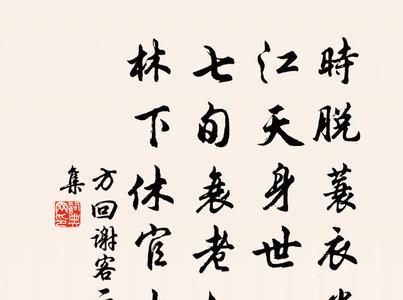 時脱蓑衣
江天身世
七旬衰老
林下休官
方回謝客
集